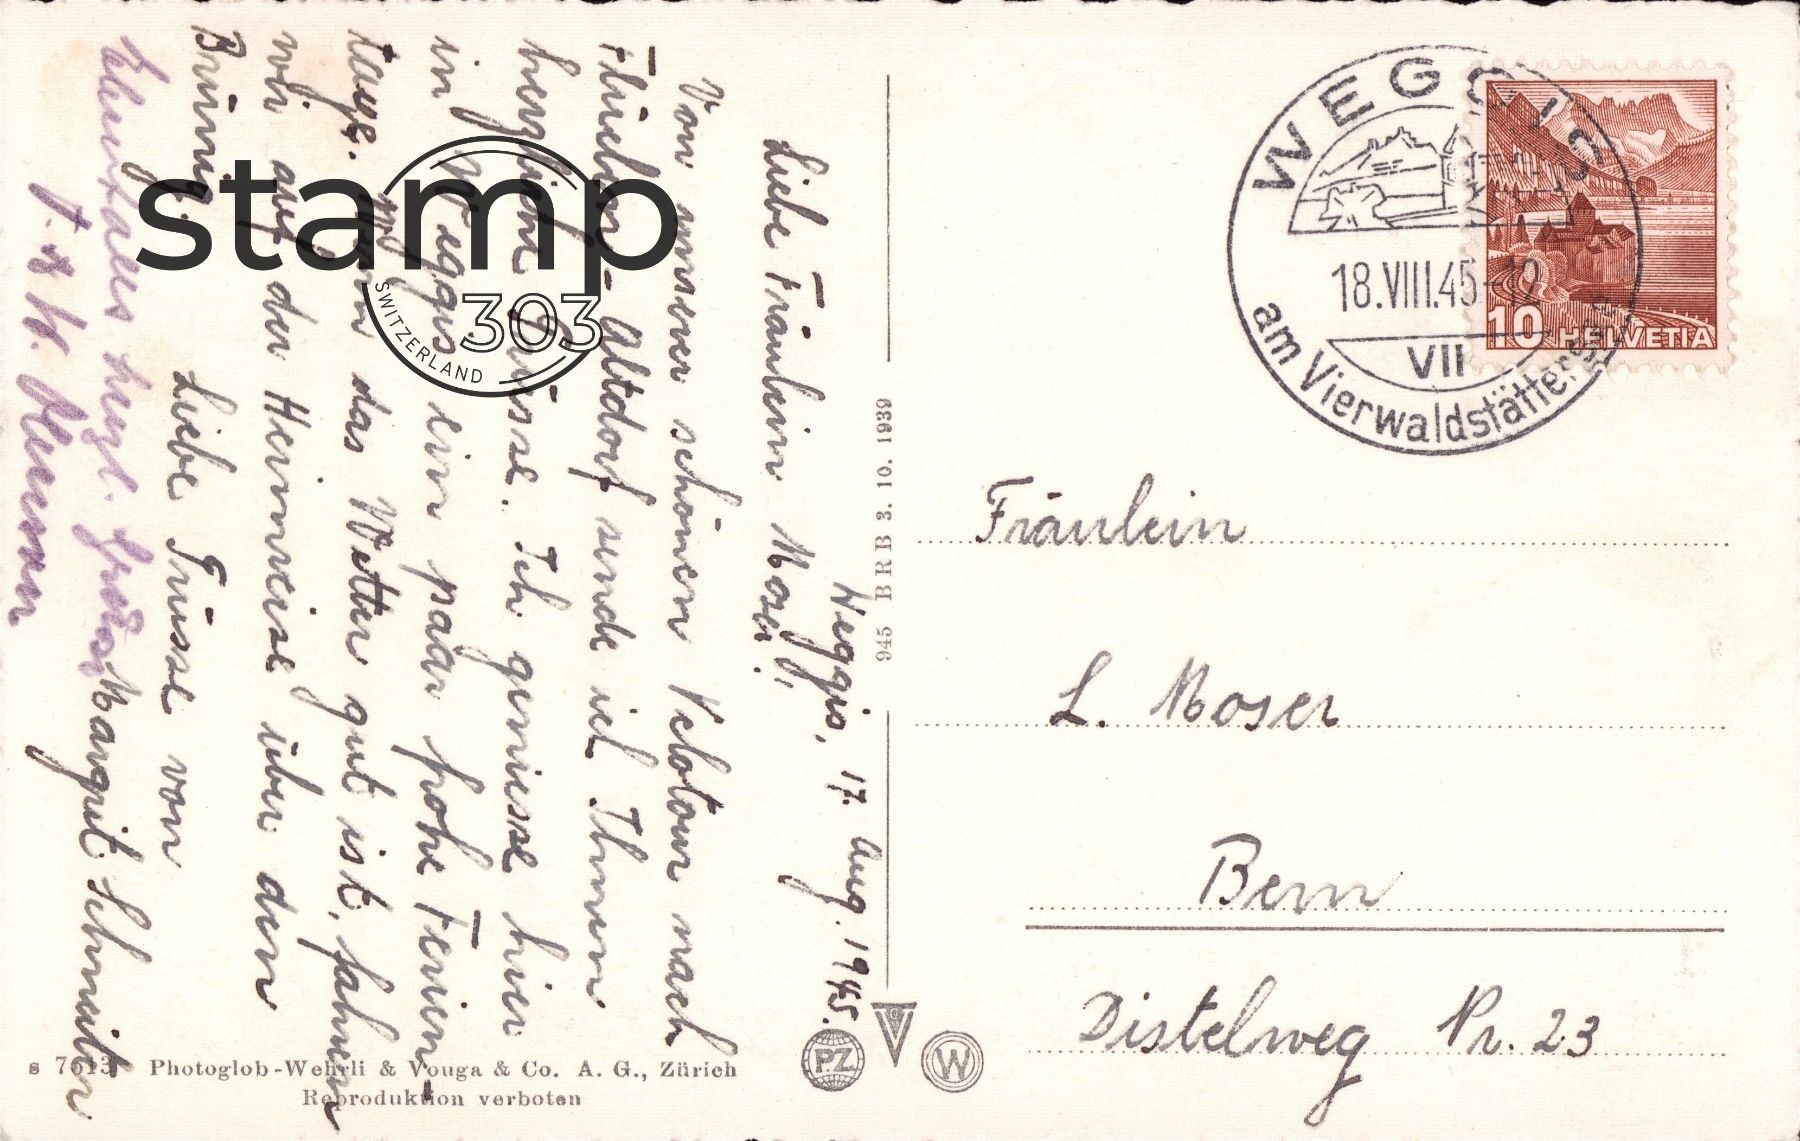 Weggis, 17. Aug. 1945.
Liebe Fräulein Moser!
Von unserer schönen Velotour nach
Flüelen-Altdorf sende ich Ihnen
herzliche Grüsse. Ich geniesse hier
in Weggis ein paar frohe Ferien-
tage. Wenn das Wetter gut ist, fahren
wir auf der Heimreise über den
Brünig.
Liebe Grüsse von
Margrit Schneiter
herzl. Grüsse
WEGGIS
18.VIII.45-12
VII
am Vierwaldstättersee
10 HELVETIA
Fräulein
L. Moser
Bern
Distelweg Nr. 23
945 BRB 3. 10. 1939
s 7613 Photoglob-Wehrli & Vouga & Co. A. G., Zürich
Reproduktion verboten
PZ
G
W
stamp
303
SWITZERLAND